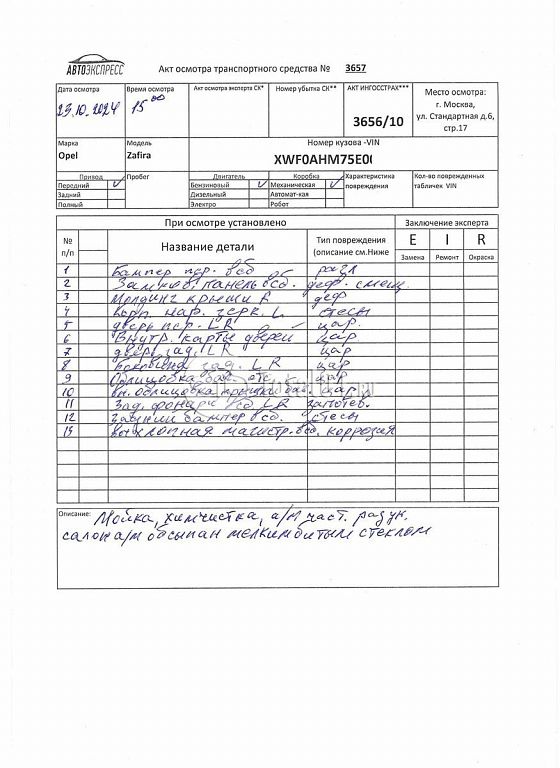 АВТОЭКСПРЕСС
Акт осмотра транспортного средства № 3657
Дата осмотра Время осмотра Акт осмотра эксперта СК* Номер убытка СК** АКТ ИНГОССТРАХ*** Место осмотра:
23.10.2024 15 00 3656/10 г. Москва,
ул. Стандартная д.6,
стр.17
Марка Модель Номер кузова -VIN
Opel Zafira XWF0AHM75E0
Привод Пробег Двигатель Коробка Характеристика повреждения Кол-во поврежденных табличек VIN
Передний Бензиновый Механическая
Задний Дизельный Автомат-кая
Полный Электро Робот
При осмотре установлено Заключение эксперта
№ п/п Название детали Тип повреждения (описание см.Ниже E I R
Замена Ремонт Окраска
1 Бампер пер. в сб разл
2 Замков. панель в сб. деф. смещ.
3 Молдинг крыши R деф
4 Корп. нар. зерк. L стесы
5 дверь пер. LR цар.
6 Внутр. карты дверей цар
7 двери зад. LR цар
8 Боковина зад. LR цар
9 Облицовка баг. отс. цар
10 вн. облицовка крышки баг. цар
11 Зад. фонари сб LR запотев.
12 Задний бампер в сб. стесы
13 выхлопная магистр. в сб. коррозия
Описание: Мойка, химчистка, а/м част. разук.
салон а/м обсыпан мелким битым стеклом